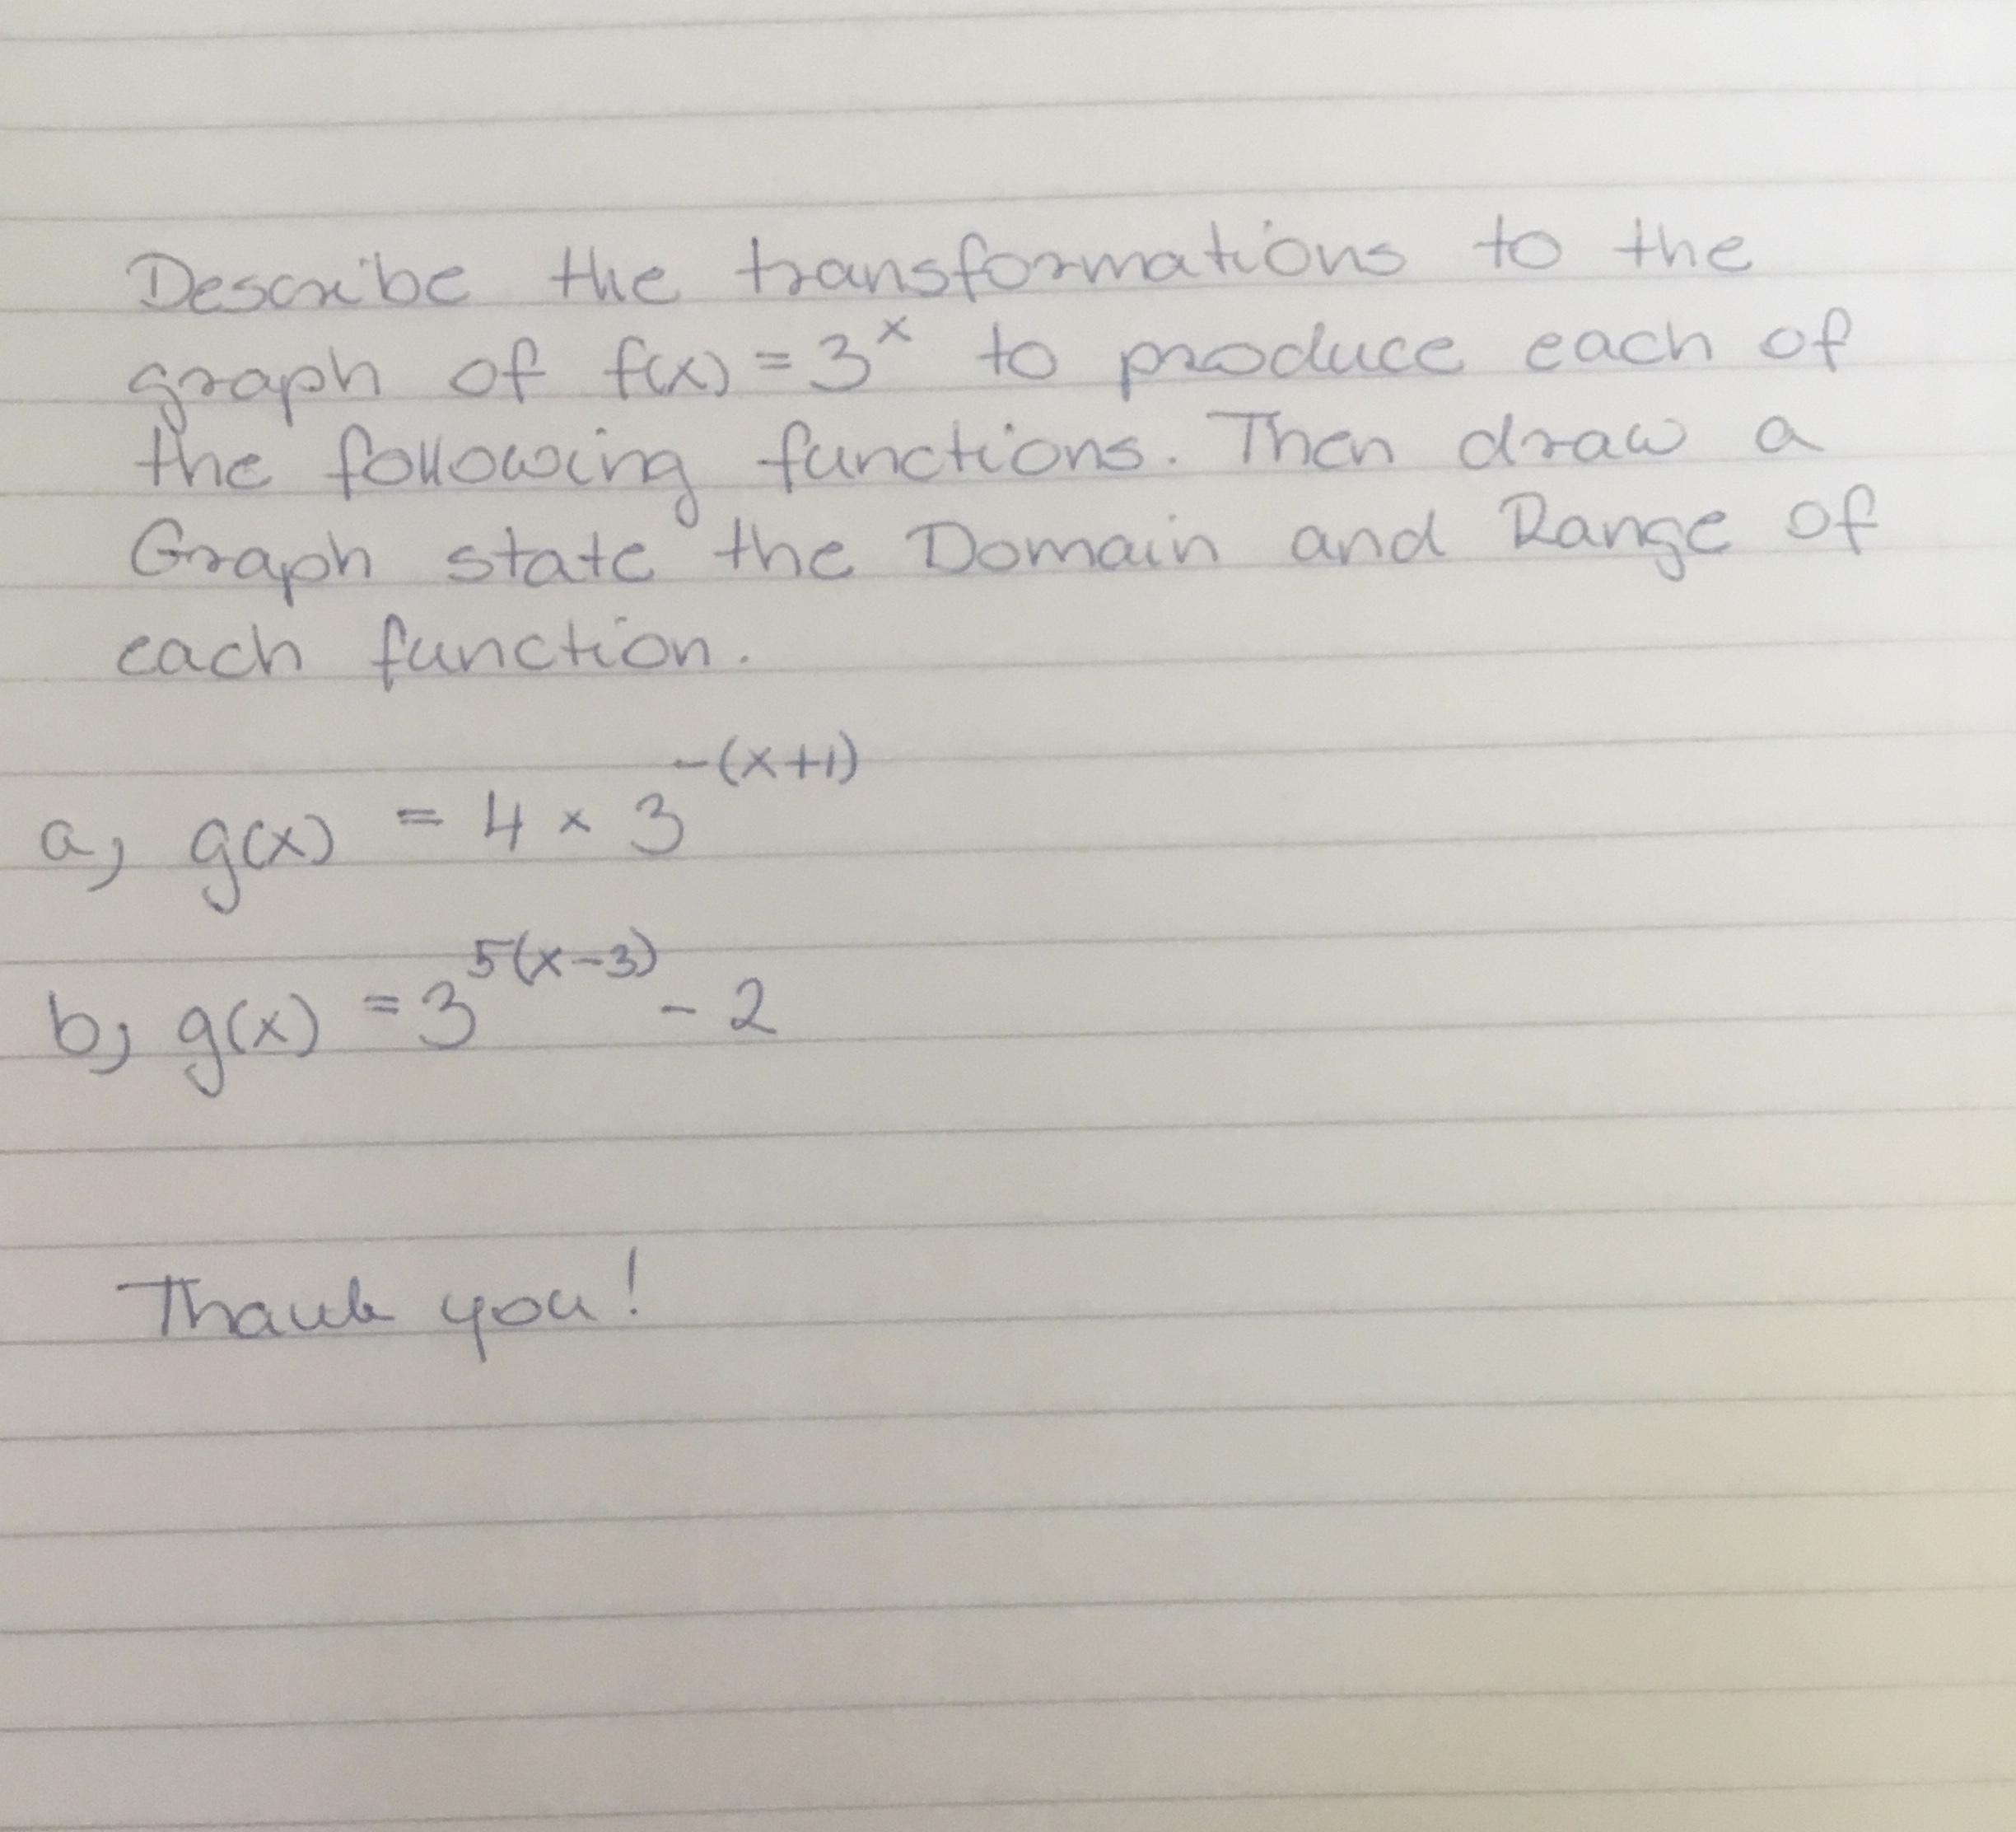 Describe the transformations to the
graph of f(x) = 3^x to produce each of
the following functions. Then draw a
Graph state the Domain and Range of
each function.
a, g(x) = 4 × 3^-(x+1)
b, g(x) = 3^5(x-3) - 2
Thank you!